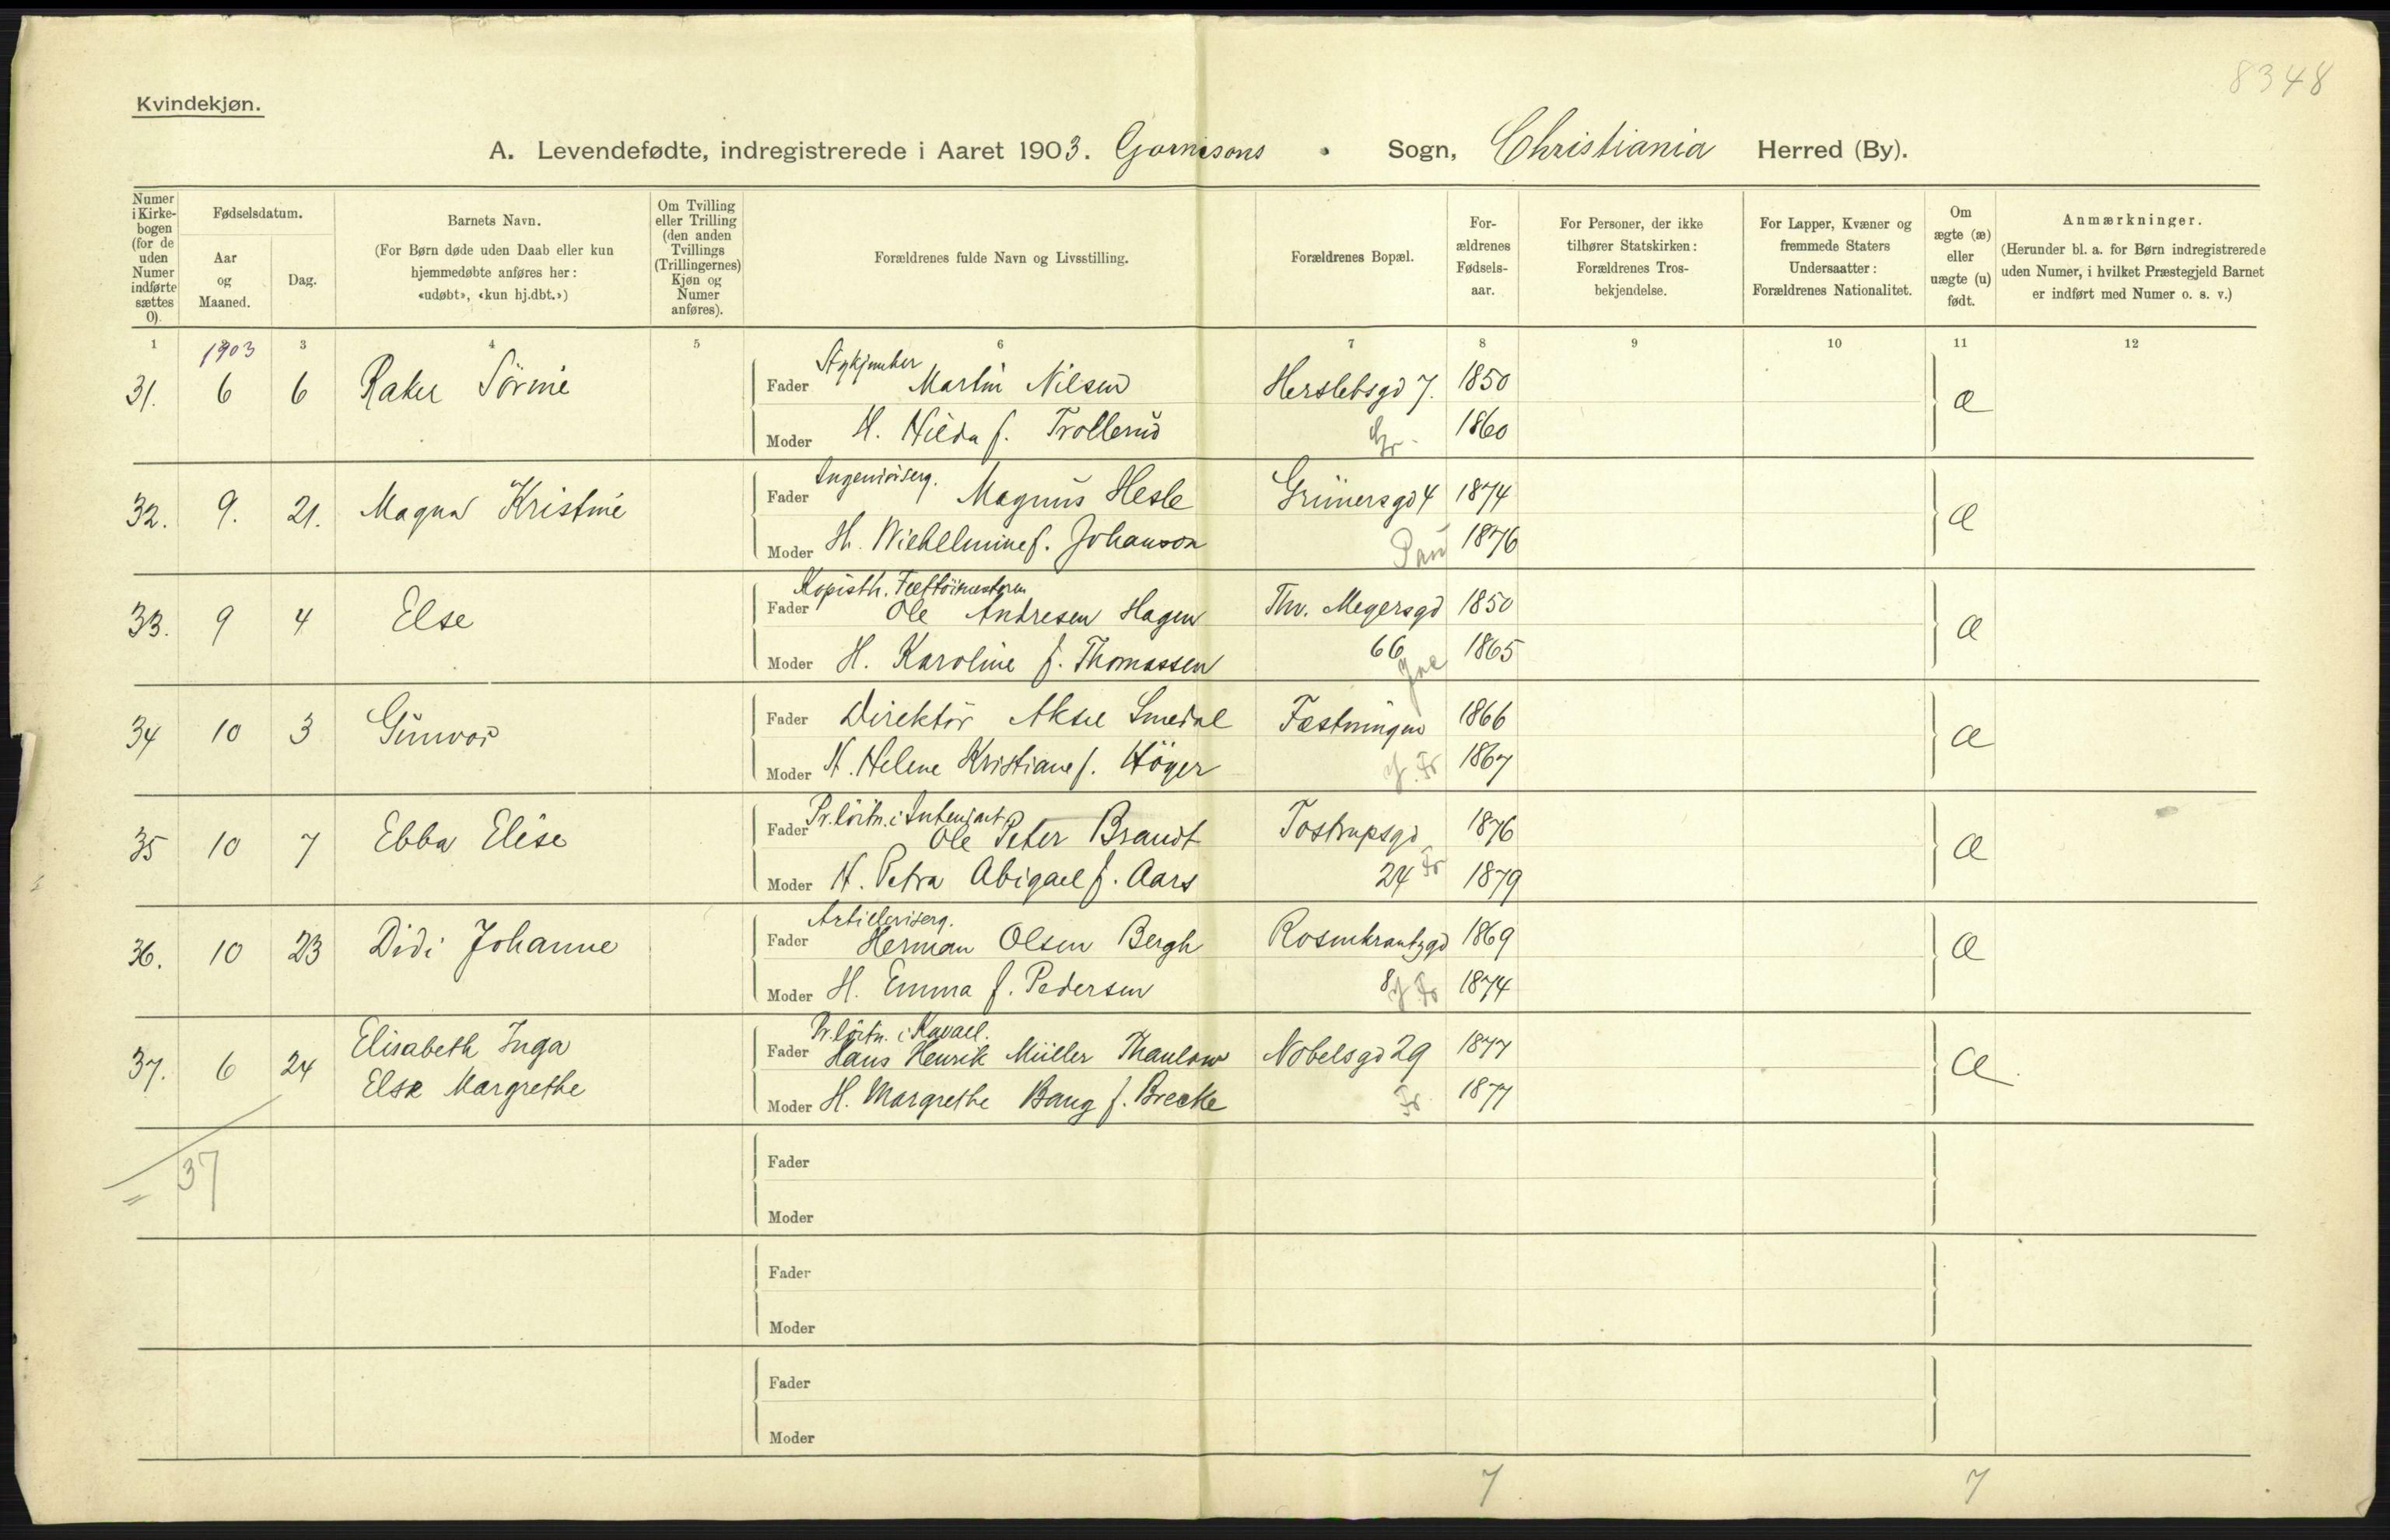 8348
Kvindekjøn.
A. Levendefødte, indregistrerede i Aaret 1903. Garnisons Sogn, Christiania Herred (By).
Numer i Kirke-bogen (for de uden Numer indførte sættes 0).
Fødselsdatum.
Aar og Maaned.
Dag.
Barnets Navn.
(For Børn døde uden Daab eller kun hjemmedøbte anføres her: «udøbt», «kun hj.dbt.»)
Om Tvilling eller Trilling (den anden Tvillings (Trillingernes) Kjøn og Numer anføres).
Forældrenes fulde Navn og Livsstilling.
Forældrenes Bopæl.
For-ældrenes Fødsels-aar.
For Personer, der ikke tilhører Statskirken: Forældrenes Tros-bekjendelse.
For Lapper, Kvæner og fremmede Staters Undersaatter: Forældrenes Nationalitet.
Om ægte (æ) eller uægte (u) født.
Anmærkninger.
(Herunder bl. a. for Børn indregistrerede uden Numer, i hvilket Præstegjeld Barnet er indført med Numer o. s. v.)
1 3 4 5 6 7 8 9 10 11 12
1903
31. 6 6
Fader Martin Nilsen Herslebsgd 7. 1850 æ
Moder H. Hilda f. Trollerud Gr. 1860
Ingeniörserg.
32. 9. 21. Magna Kristine Fader Magnus Hesle Grünersgd 4 1874 æ
Moder H. Wilhelmine f. Johanson 1876
33. 9 4 Else Fader Ole Andresen Hagen Thv. Meyersgd 1850 æ
Moder H. Karoline f. Thomassen 66 1865
34 10 3 Gunvor Fader Direktör Aksel Smedal Fæstningen 1866 æ
Moder H. Helene Kristiane f. Höyer J. Fr 1867
35 10 7 Ebba Elise Fader Ole Peter Brandt Tostrupsgd 1876 æ
Moder H. Petra Abigael f. Aars 24 Fr 1879
Artilleriserg.
36. 10 23 Didi Johanne Fader Herman Olsen Bergh Rosenkrantzgd 1869 æ
Moder H. Emma f. Pedersen 8 J Fr 1874
Pr.löitn. i Kavall.
37. 6 24 Elisabeth Inga Fader Hans Henrik Müller Thaulow Nobelsgd 29 1877 æ
Else Margrethe Moder H. Margrethe Bang f. Brecke Fr 1877
37
Fader
Moder
Fader
Moder
Fader
Moder
7 7